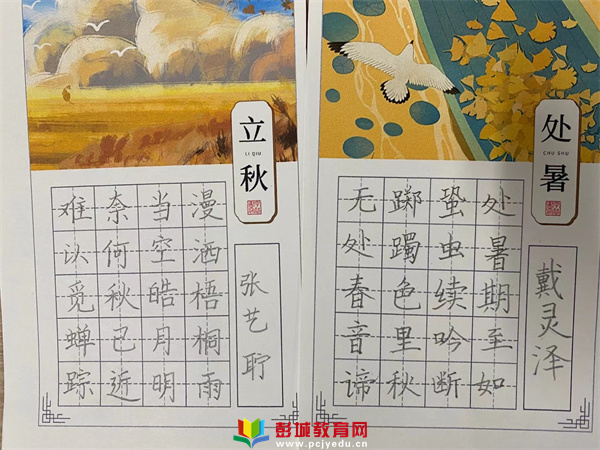 立秋
LI QIU
漫洒梧桐雨
当空皓月明
奈何秋已近
难以觅蝉踪
张艺
处暑
CHU SHU
处暑期至如
蛰虫续吟断
踯躅色里秋
无处春音谛
戴灵泽
彭城教育网
www.pcjyedu.cn